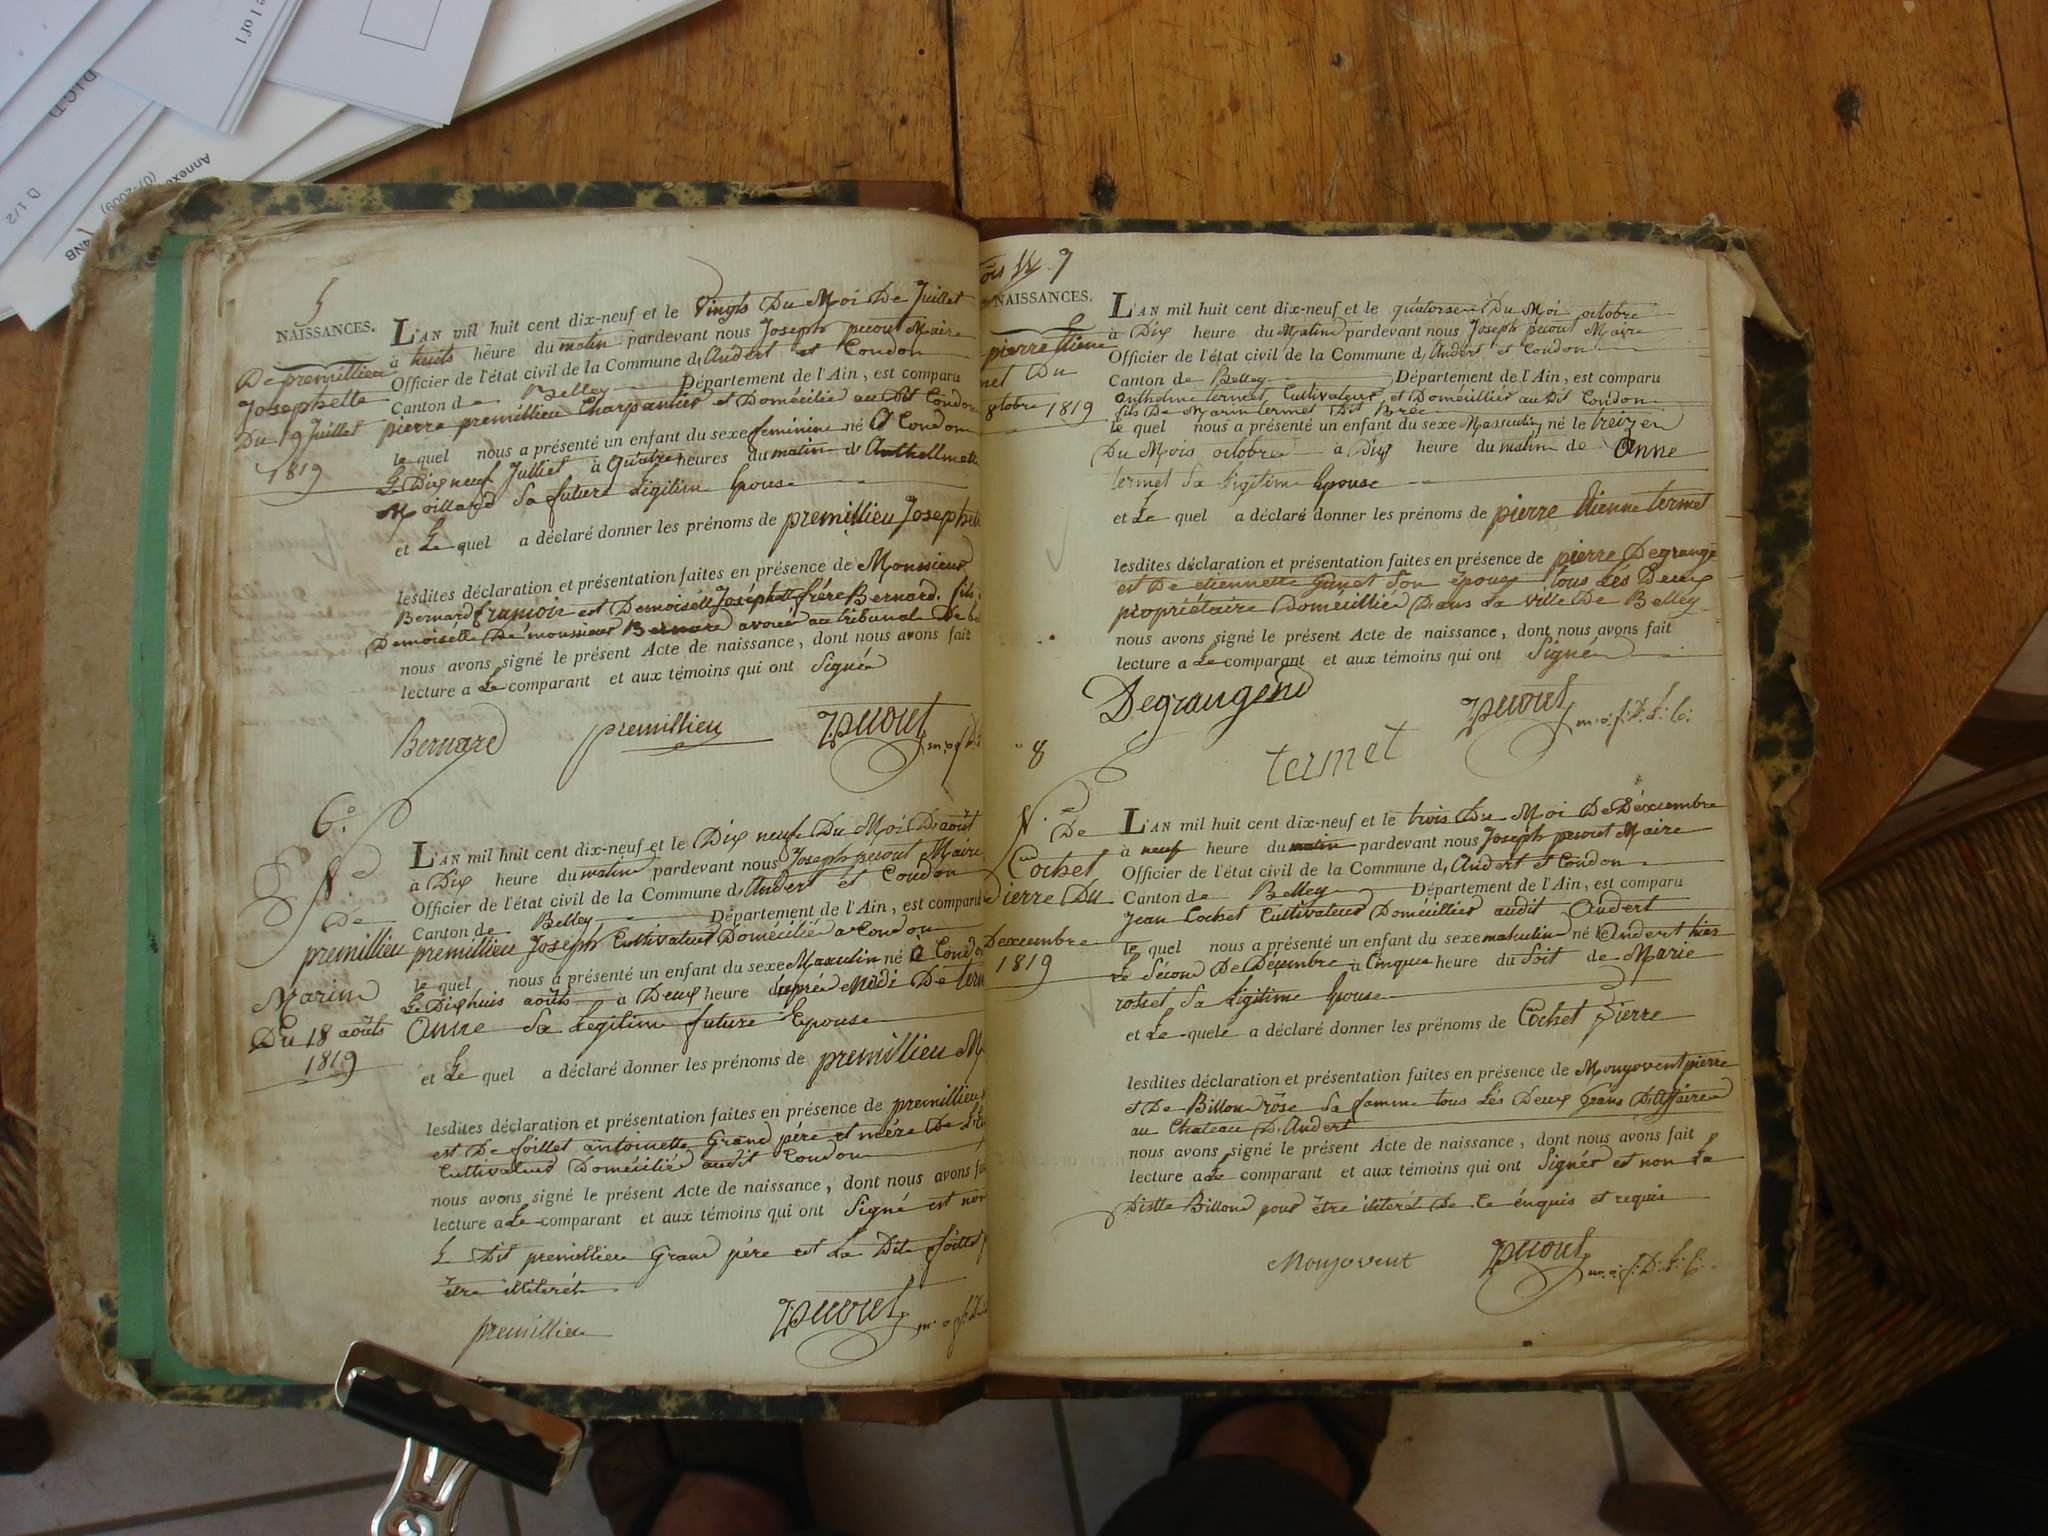 e 1 of 1
DICTI
Annexe
(07-2009)
D 1/2
4NB
5
NAISSANCES.
De premillieu
Josephette
Du 19 Juillet
1819
L'AN mil huit cent dix-neuf et le Vingts Du Moi De Juillet
à huits heure du matin pardevant nous Joseph pucout Maire
Officier de l'état civil de la Commune d'Andert et Condon
Canton de Belley Département de l'Ain, est comparu
pierre premillieu Charpantier et Domécilié au Dit Condon
le quel nous a présenté un enfant du sexe feminine né a Condon
Le Dix neuf Julliet à Quatre heures du matin d' Anthellmette
Moillard Sa future Ligitime Epouse
et Le quel a déclaré donner les prénoms de premillieu Joseph
lesdites déclaration et présentation faites en présence de Monsieur
Bernard françois est Demoiselle Joséphatte frére Bernard, fils
Demoiselle De monsieur Bernard avoué au tribunal De
nous avons signé le présent Acte de naissance, dont nous avons fait
lecture a Le comparant et aux témoins qui ont Signé
Bernard premillieu J.pucout
6.
N.
De
premillieu
Marin
Du 18 aoûts
1819
L'AN mil huit cent dix-neuf et le Dix neuf Du Moi D'août
à Dix heure du matin pardevant nous Joseph pucout Maire
Officier de l'état civil de la Commune d'Andert et Condon
Canton de Belley Département de l'Ain, est comparu
premillieu Joseph Cultivateur Domécilié a Condon
le quel nous a présenté un enfant du sexe Masculin né a Condon
Le Dix huis aoûts à Deux heure d'aprée Midi De
Anne Sa Legitime future Epouse
et Le quel a déclaré donner les prénoms de premillieu M
lesdites déclaration et présentation faites en présence de premillieu
est De foillet antoinette Grand pére et mére De
Cultivateur Domécilié audit Condon
nous avons signé le présent Acte de naissance, dont nous avons fai
lecture a Le comparant et aux témoins qui ont Signé est non
Le Dit premillieu Grand pére est La Dite foillet
être illiterét
premillieu J.pucout
7
NAISSANCES.
pierre Etienne
met Du
octobre 1819
L'AN mil huit cent dix-neuf et le quatorse Du Moi octobre
à Dix heure du Matin pardevant nous Joseph pucout Maire
Officier de l'état civil de la Commune d'Andert et Condon
Canton de Belley Département de l'Ain, est comparu
Anthelme termet Cultivateur et Domécillier au Dit Condon
fils De Marin termet Dit Bréc
le quel nous a présenté un enfant du sexe Masculin né le treizen
Du Mois octobre à Dix heure du matin de Anne
termet Sa Ligitime Epouse
et Le quel a déclaré donner les prénoms de pierre Etienne termet
lesdites déclaration et présentation faites en présence de pierre Degrange
est De etiennette Ganet Son épouse tous Les Deux
propriétaire Domécillié Dans La ville De Belley
nous avons signé le présent Acte de naissance, dont nous avons fait
lecture a Le comparant et aux témoins qui ont Signé
Degrangend J.pucout m. o. f. D. L. C.
termet
8
N.
De
Cochet
Pierre Du
Dexcembre
1819
L'AN mil huit cent dix-neuf et le trois Du Moi De Déxcembre
à neuf heure du matin pardevant nous Joseph pucout Maire
Officier de l'état civil de la Commune d'Andert et Condon
Canton de Belley Département de l'Ain, est comparu
Jean Cochet Cultivateur Domécillier audit Andert
le quel nous a présenté un enfant du sexe masculin né a Andert hier
le Second De Décembre à Cinque heure du Soit de Marie
rosset Sa Ligitime Epouse
et Le quele a déclaré donner les prénoms de Cochet pierre
lesdites déclaration et présentation faites en présence de Monjovent pierre
et De Billon rôse Sa famme tous Les Deux Grans D'affaire
au Chateau D'Andert
nous avons signé le présent Acte de naissance, dont nous avons fait
lecture a Le comparant et aux témoins qui ont Signér est non La
Ditte Billon pour être iliterét De Ce énquis et requis
Monjovent J.pucout m. o. f. D. L. C.